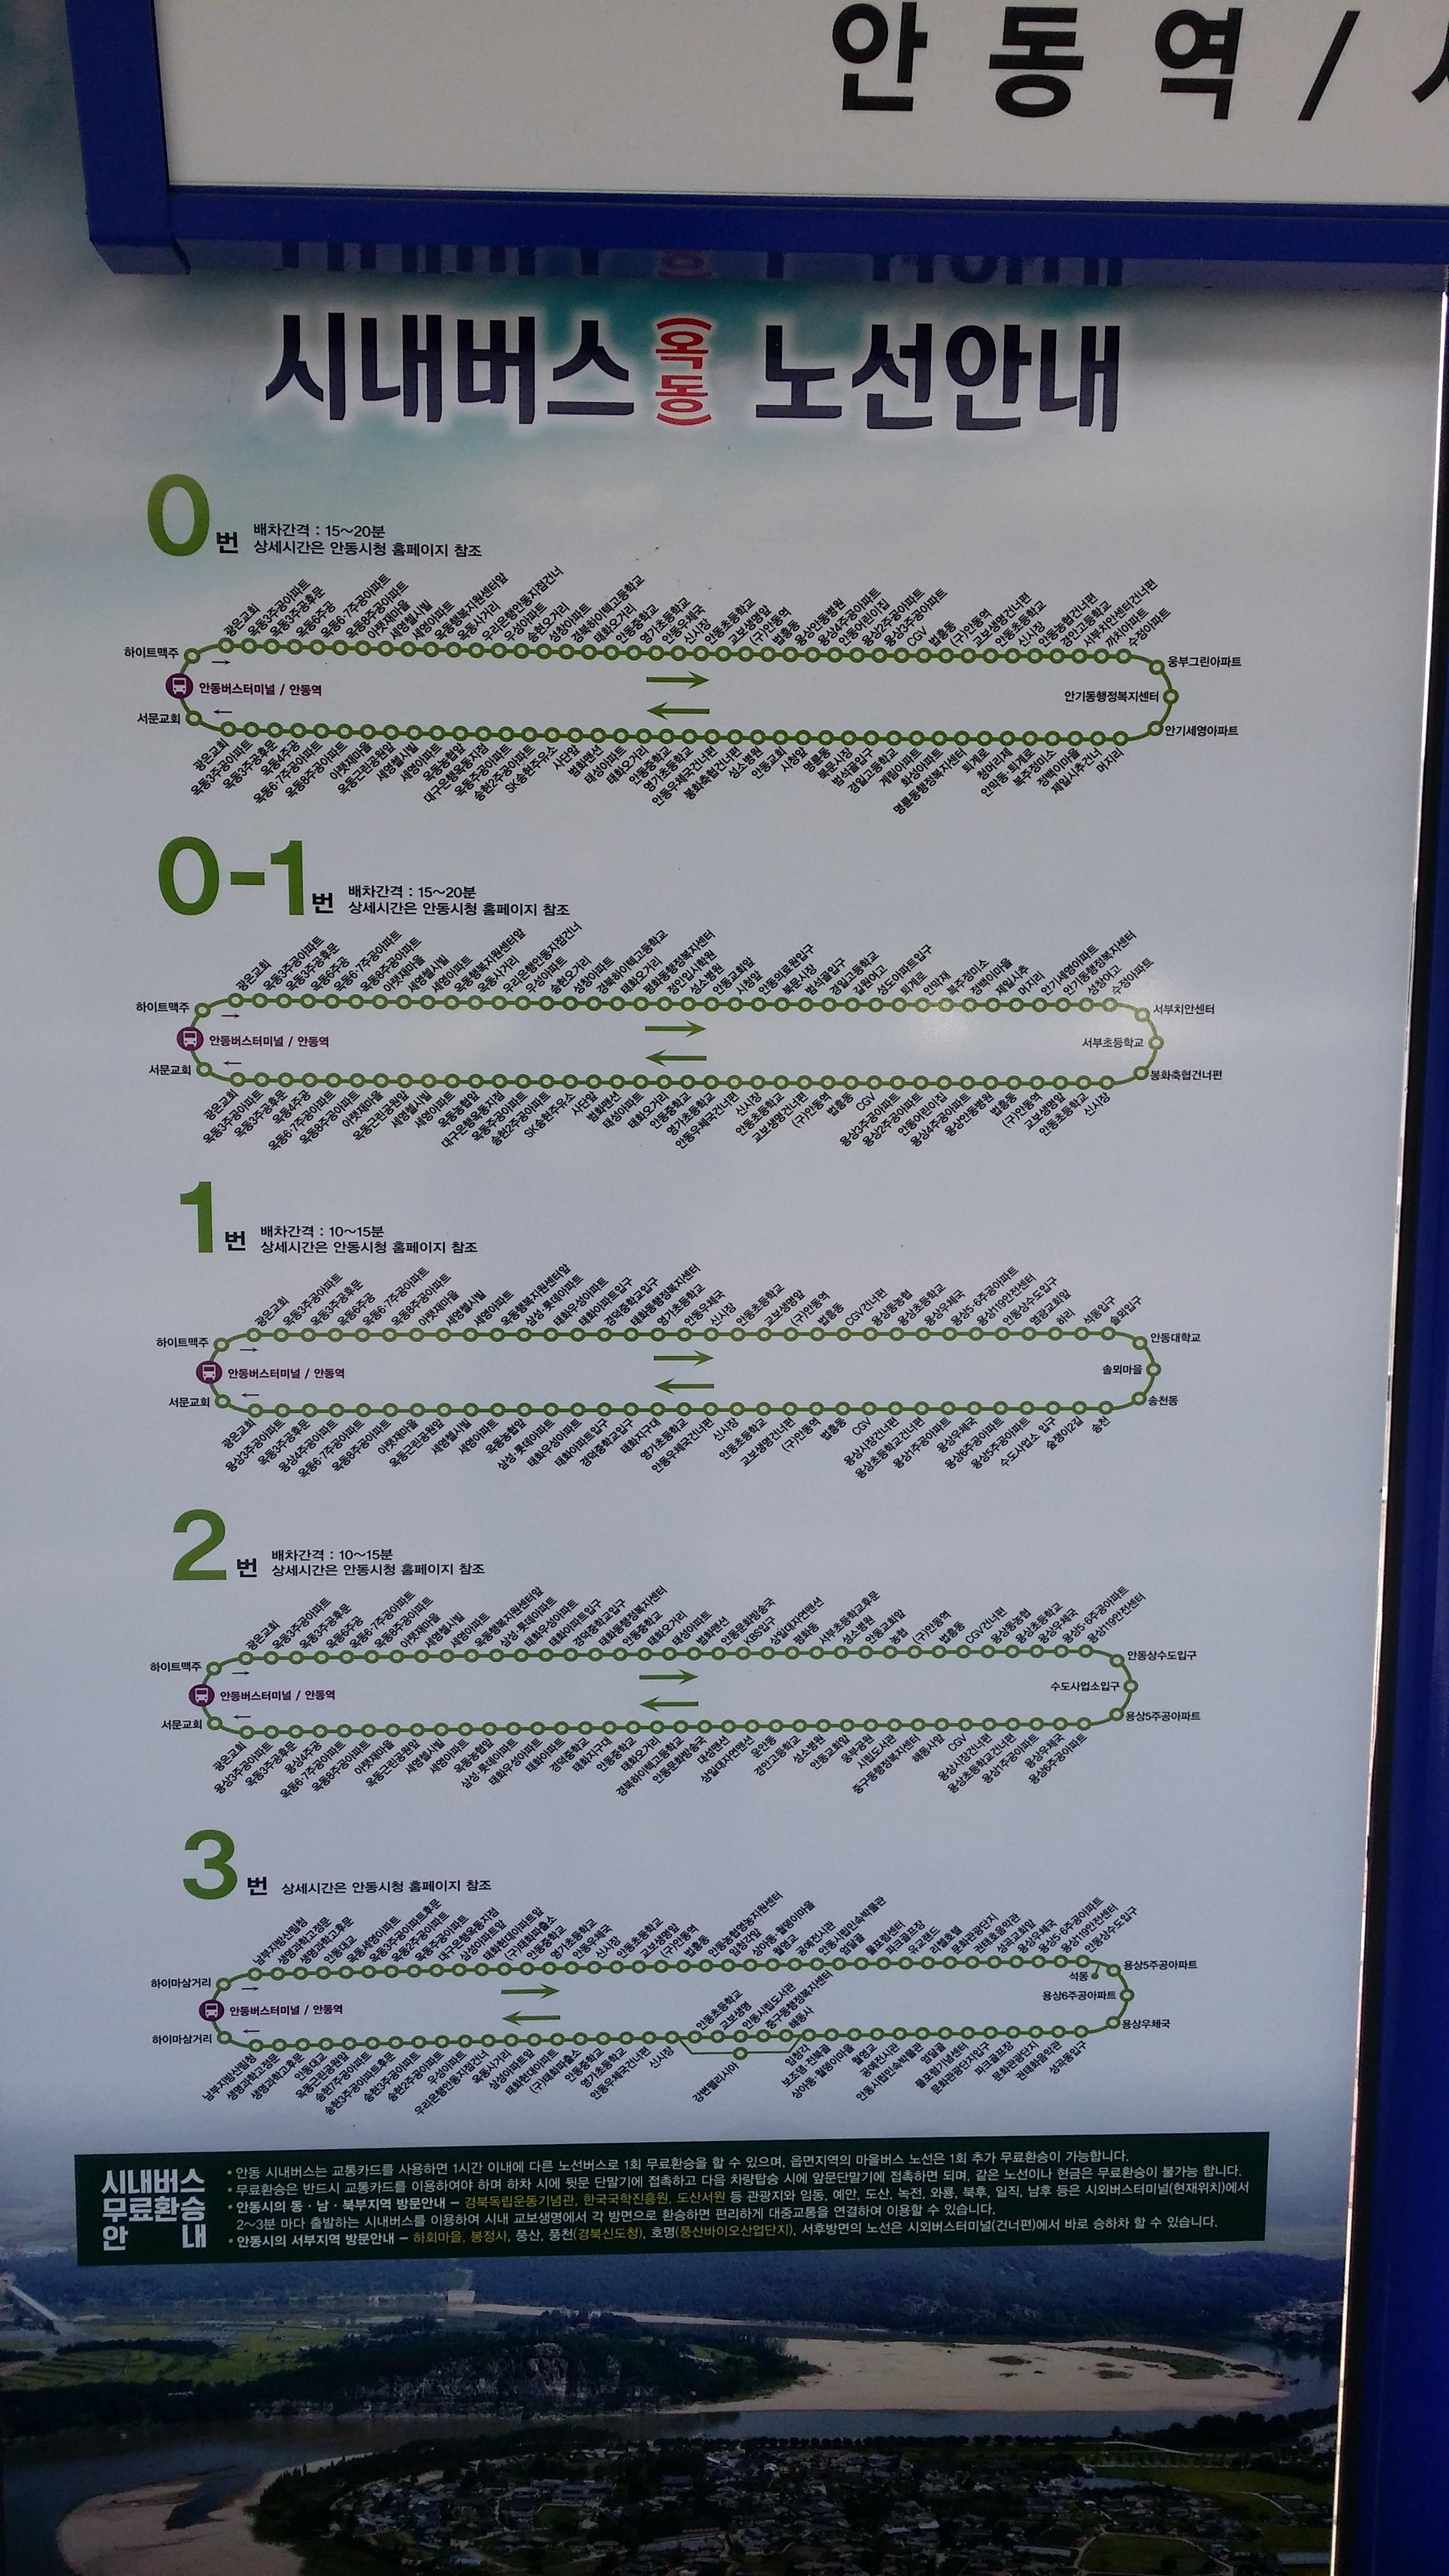 안동역/
시내버스 (옥동) 노선안내
0번
배차간격 : 15~20분
상세시간은 안동시청 홈페이지 참조
광은교회 옥동3주공아파트 옥동3주공후문 옥동6주공 옥동6·7주공아파트 옥동8주공아파트 아랫재마을 세영첼시빌 세영아파트 옥동행복지원센터앞 옥동사거리 우리은행안동지점건너 우성아파트 송현오거리 성창아파트 경북하이텍고등학교 태화오거리 안동중학교 영가초등학교 안동우체국 신시장 안동초등학교 교보생명앞 (구)안동역 법흥동 용상안동병원 용상4주공아파트 안동어린이집 용상2주공아파트 용상3주공아파트 CGV 법흥동 (구)안동역 교보생명건너편 안동초등학교 신시장 안동농협건너편 경안고등학교 서부치안센터건너편 까치아파트 수정아파트
하이트맥주
웅부그린아파트
안동버스터미널 / 안동역
안기동행정복지센터
서문교회
안기세영아파트
광은교회 옥동3주공아파트 옥동3주공후문 옥동4주공 옥동6·7주공아파트 옥동8주공아파트 아랫재마을 옥동근린공원앞 세영첼시빌 세영아파트 옥동농협앞 대구은행옥동지점 옥동주공아파트 송현2주공아파트 SK송현주유소 사단앞 범화맨션 태성아파트 태화오거리 안동중학교 영가초등학교 안동우체국건너편 봉화축협건너편 성소병원 안동교회 시청앞 명륜동 북문시장 범석골입구 경일고등학교 계림아파트 화성아파트 명륜동행정복지센터 퇴계로 청머리재 안막동·퇴계로 북주정미소 정백이마을 제일시추건너 머지리
0-1번
배차간격 : 15~20분
상세시간은 안동시청 홈페이지 참조
광은교회 옥동3주공아파트 옥동3주공후문 옥동6주공 옥동6·7주공아파트 옥동8주공아파트 아랫재마을 세영첼시빌 세영아파트 옥동행복지원센터앞 옥동사거리 우리은행안동지점건너 우성아파트 송현오거리 성창아파트 경북하이텍고등학교 태화오거리 평화동행정복지센터 정안입시학원 성소병원 안동교회앞 시청앞 안동의료원입구 북문시장 범석골입구 경일고등학교 길원여고 성도아파트입구 퇴계로 안막재 북주정미소 정백이마을 제일시추 머지리 안기세영아파트 안기동행정복지센터 성창여고 수정아파트
하이트맥주
서부치안센터
안동버스터미널 / 안동역
서부초등학교
서문교회
봉화축협건너편
광은교회 옥동3주공아파트 옥동3주공후문 옥동4주공 옥동6·7주공아파트 옥동8주공아파트 아랫재마을 옥동근린공원앞 세영첼시빌 세영아파트 옥동농협앞 대구은행옥동지점 옥동주공아파트 송현2주공아파트 SK송현주유소 사단앞 범화맨션 태성아파트 태화오거리 안동중학교 영가초등학교 안동우체국건너편 신시장 안동초등학교 교보생명건너편 (구)안동역 법흥동 CGV 용상3주공아파트 용상2주공아파트 안동어린이집 용상4주공아파트 용상안동병원 법흥동 (구)안동역 교보생명앞 안동초등학교 신시장
1번
배차간격 : 10~15분
상세시간은 안동시청 홈페이지 참조
광은교회 옥동3주공아파트 옥동3주공후문 옥동6주공 옥동6·7주공아파트 옥동8주공아파트 아랫재마을 세영첼시빌 세영아파트 옥동행복지원센터앞 삼성·롯데아파트 태화우성아파트 태화아파트입구 경덕중학교입구 태화동행정복지센터 영가초등학교 안동우체국 신시장 안동초등학교 교보생명앞 (구)안동역 법흥동 CGV건너편 용상동농협 용상초등학교 용상우체국 용상5·6주공아파트 용상119안전센터 안동상수도입구 영광교회앞 하리 석동입구 솔뫼입구
하이트맥주
안동대학교
안동버스터미널 / 안동역
솔뫼마을
서문교회
송천동
광은교회 용상3주공아파트 옥동3주공후문 용상4주공아파트 옥동6·7주공아파트 옥동8주공아파트 아랫재마을 옥동근린공원앞 세영첼시빌 세영아파트 옥동농협앞 삼성·롯데아파트 태화우성아파트 태화아파트입구 경덕중학교입구 태화지구대 영가초등학교 안동우체국건너편 신시장 안동초등학교 교보생명건너편 (구)안동역 법흥동 CGV 용상시장건너편 용상초등학교건너편 용상1주공아파트 용상우체국 용상6주공아파트 용상5주공아파트 수도사업소 입구 술쟁이2길 송천
2번
배차간격 : 10~15분
상세시간은 안동시청 홈페이지 참조
광은교회 옥동3주공아파트 옥동3주공후문 옥동6주공 옥동6·7주공아파트 옥동8주공아파트 아랫재마을 세영첼시빌 세영아파트 옥동행복지원센터앞 삼성·롯데아파트 태화우성아파트 태화아파트입구 경덕중학교입구 태화동행정복지센터 안동중학교 태화오거리 태성아파트 범화맨션 안동문화방송국 KBS입구 상일대자연맨션 평화동 서부초등학교후문 성소병원 안동교회앞 농협 (구)안동역 법흥동 CGV건너편 용상동농협 용상초등학교 용상우체국 용상5·6주공아파트 용상119안전센터
하이트맥주
안동상수도입구
안동버스터미널 / 안동역
수도사업소입구
서문교회
용상5주공아파트
광은교회 용상3주공아파트 옥동3주공후문 용상4주공 옥동6·7주공아파트 옥동8주공아파트 아랫재마을 옥동근린공원앞 세영첼시빌 세영아파트 옥동농협앞 삼성·롯데아파트 태화우성아파트 태화아파트 경덕중학교 태화지구대 안동중학교 태화오거리 경북하이텍고등학교 안동문화방송국 대성맨션 상일대자연맨션 운안동 경안고등학교 성소병원 안동교회앞 웅부공원 시립도서관 중구동행정복지센터 해동사앞 CGV 용상시장건너편 용상초등학교건너편 용상1주공아파트 용상우체국 용상6주공아파트
3번
상세시간은 안동시청 홈페이지 참조
남부지방산림청 생명과학고정문 생명과학고후문 안동대교 옥동세영아파트 옥동3주공아파트후문 옥동2주공아파트 옥동주공아파트 대구은행옥동지점 삼성아파트앞 태화현대아파트앞 (구)태화파출소 안동중학교 영가초등학교 안동우체국 신시장 안동초등학교 교보생명앞 (구)안동역 법흥동 안동농협영농지원센터 임청각앞 상아동·월영이마을 월영교 공예전시관 안동시립민속박물관 엄달골 물포럼센터 파크골프장 유교랜드 리첼호텔 문화관광단지 전통음악관 성곡교회앞 용상우체국 용상5·6주공아파트 용상119안전센터 안동상수도입구
하이마삼거리
석동
용상5주공아파트
안동버스터미널 / 안동역
용상6주공아파트
하이마삼거리
용상우체국
안동초등학교 교보생명 안동시립도서관 중구동행정복지센터 해동사
강변펠리시아
남부지방산림청 생명과학고정문 생명과학고후문 안동대교 옥동근린공원앞 송현7주공아파트 송현3주공아파트후문 송현3주공아파트 송현2주공아파트 우성아파트 우리은행안동지점건너 옥동사거리 삼성아파트앞 태화현대아파트 (구)태화파출소 안동중학교 영가초등학교 안동우체국건너편 신시장 임청각 보조댐·전탑골 상아동·월영이마을 월영교 공예전시관 안동시립민속박물관 엄달골 물포럼기념센터 문화관광단지입구 파크골프장 문화관광단지 전통음악관 성곡동입구
시내버스 무료환승 안내
• 안동 시내버스는 교통카드를 사용하면 1시간 이내에 다른 노선버스로 1회 무료환승을 할 수 있으며, 읍면지역의 마을버스 노선은 1회 추가 무료환승이 가능합니다.
• 무료환승은 반드시 교통카드를 이용하여야 하며 하차 시에 뒷문 단말기에 접촉하고 다음 차량탑승 시에 앞문단말기에 접촉하면 되며, 같은 노선이나 현금은 무료환승이 불가능 합니다.
• 안동시의 동·남·북부지역 방문안내 – 경북독립운동기념관, 한국국학진흥원, 도산서원 등 관광지와 임동, 예안, 도산, 녹전, 와룡, 북후, 일직, 남후 등은 시외버스터미널(현재위치)에서
2~3분 마다 출발하는 시내버스를 이용하여 시내 교보생명에서 각 방면으로 환승하면 편리하게 대중교통을 연결하여 이용할 수 있습니다.
• 안동시의 서부지역 방문안내 – 하회마을, 봉정사, 풍산, 풍천(경북신도청), 호명(풍산바이오산업단지), 서후방면의 노선은 시외버스터미널(건너편)에서 바로 승하차 할 수 있습니다.